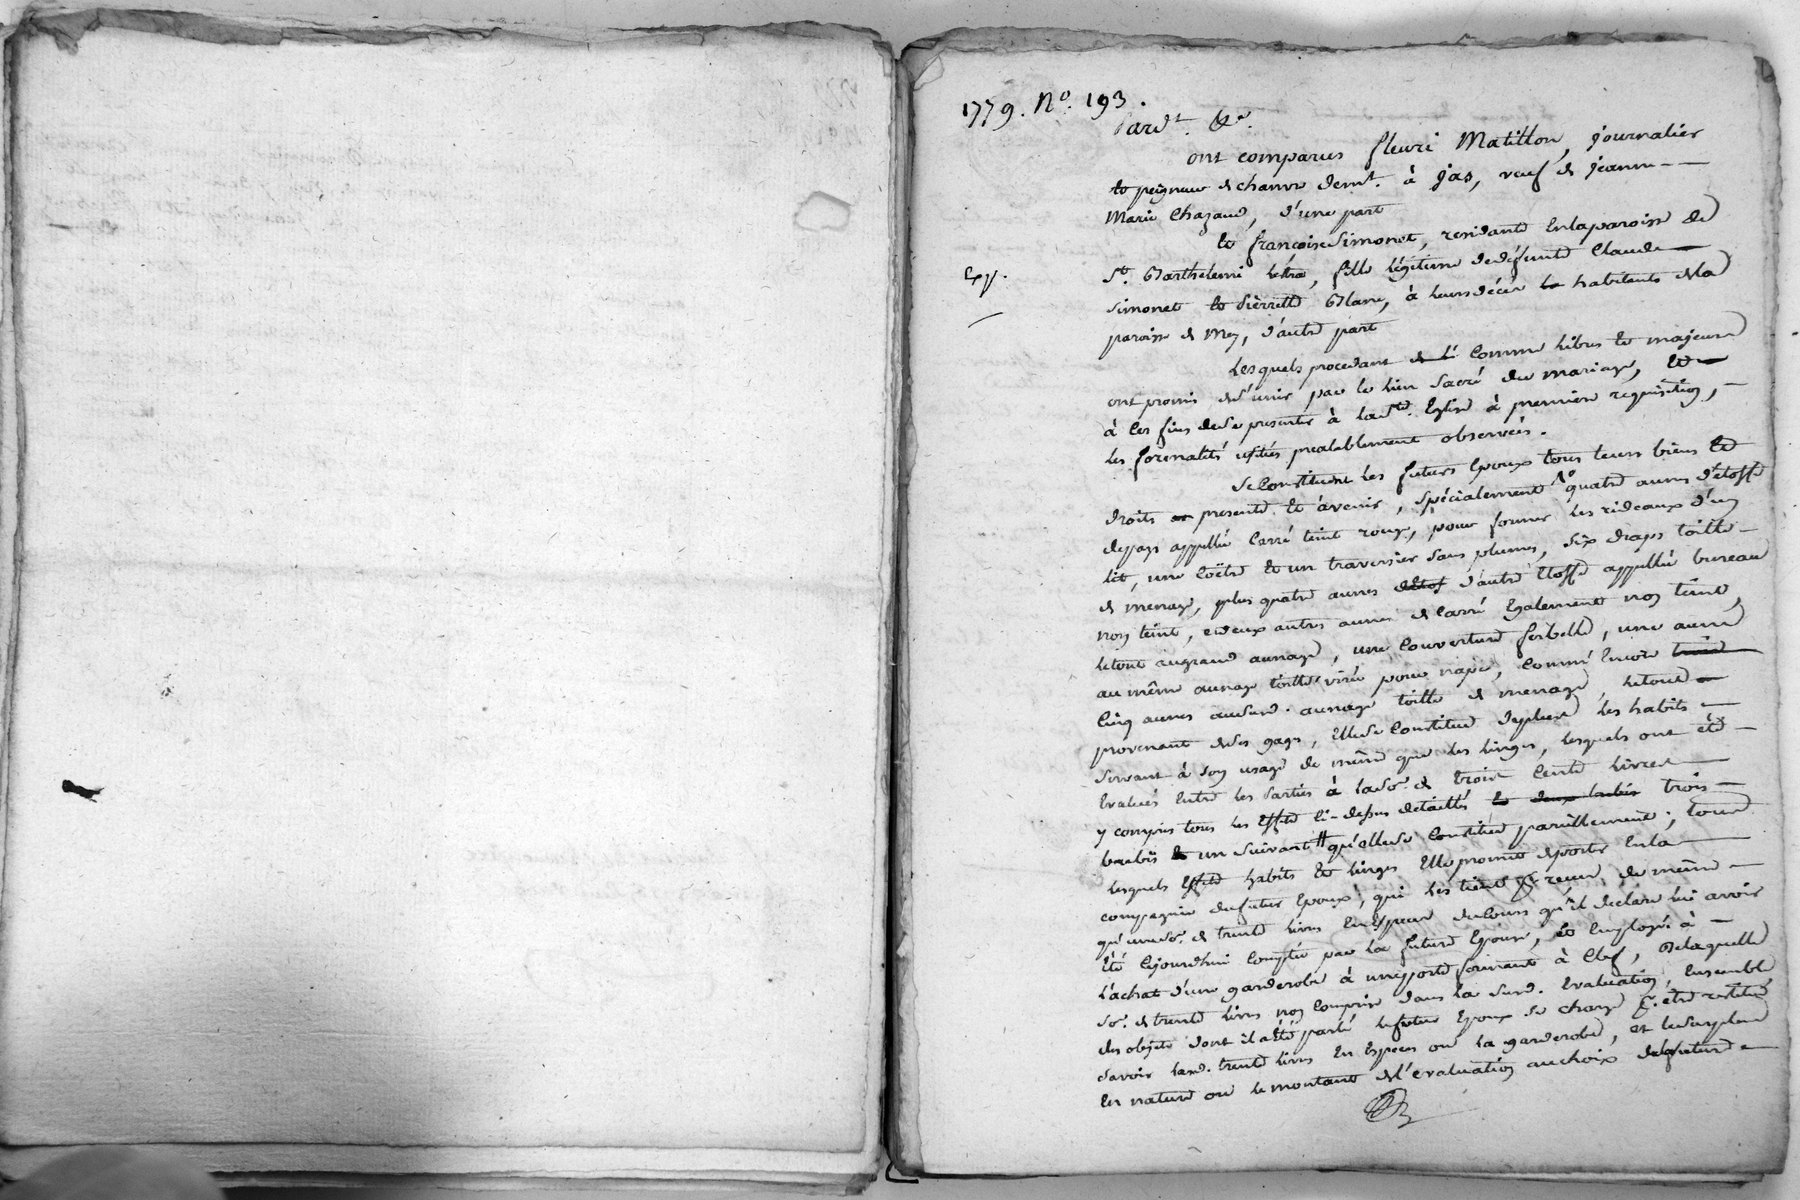 1779. N°. 193.
Pard.t &a.
ont comparus fleuri Matillon, journalier
et peigneur de chanvre demt. à Jas, veuf de jeanne
Marie Chazaud, d'une part
Et françoise Simonet, residante en la paroisse de
Exp.
St. Barthelemi Lestra, fille légitime de défunts Claude
Simonet et Pierrette Blanc, à leurs décès habitants de la
paroisse de Mey, d'autre part
Lesquels procedant comme libres et majeurs
ont promis de s'unir par le lien sacré du mariage, et
à ces fins de se presenter à la ste. Eglise à premiere requisition,
les formalités usitées prealablement observées.
Se constituent les futurs Epoux tous leurs biens et
droits presents et àvenir, spécialement quatre aunes d'étoffe
de pays appellée carré teint rouge, pour former les rideaux d'un
lit, une coëtre et un traversier sans plumes, six draps toille
de menage, plus quatre aunes d'autre étoffe appellée bureau
non teint, et deux autres aunes de carré Egalement non teint,
le tout au grand aunage, une couverture, une aune
au même aunage toille pour nape, comme Encore
cinq aunes au susd. aunage toille de menage, le tout
provenant de ses gages, Elle se Constitue de plus les habits
servant à son usage de même que les linges, lesquels ont été
Evalués Entre les Parties à la so. de trois Cents livres
y compris tous les Effets ci-dessus detaillés trois
brebis un suivant qu'elle se constitue pareillement; tous
lesquels Effets habits et linges Elle promet de porter En la
compagnie du futur Epoux, qui les tient pr. recus de même
qu'une so. de trente livres En Especes du Cours qu'il declare lui avoir
Eté Cejourd'hui comptée par la future Epouse, et Employée à
l'achat d'une garderobe à une porte fermante à Clef, de laquelle
so. de trente livres non comprise dans la susd. Evaluation, Ensemble
des objets dont il a été parlé le futur Epoux se charge pr. etre restitués
savoir lasd. trente livres En Especes ou la garderobe, et le surplus
En nature ou le montant de l'evaluation au choix de la future